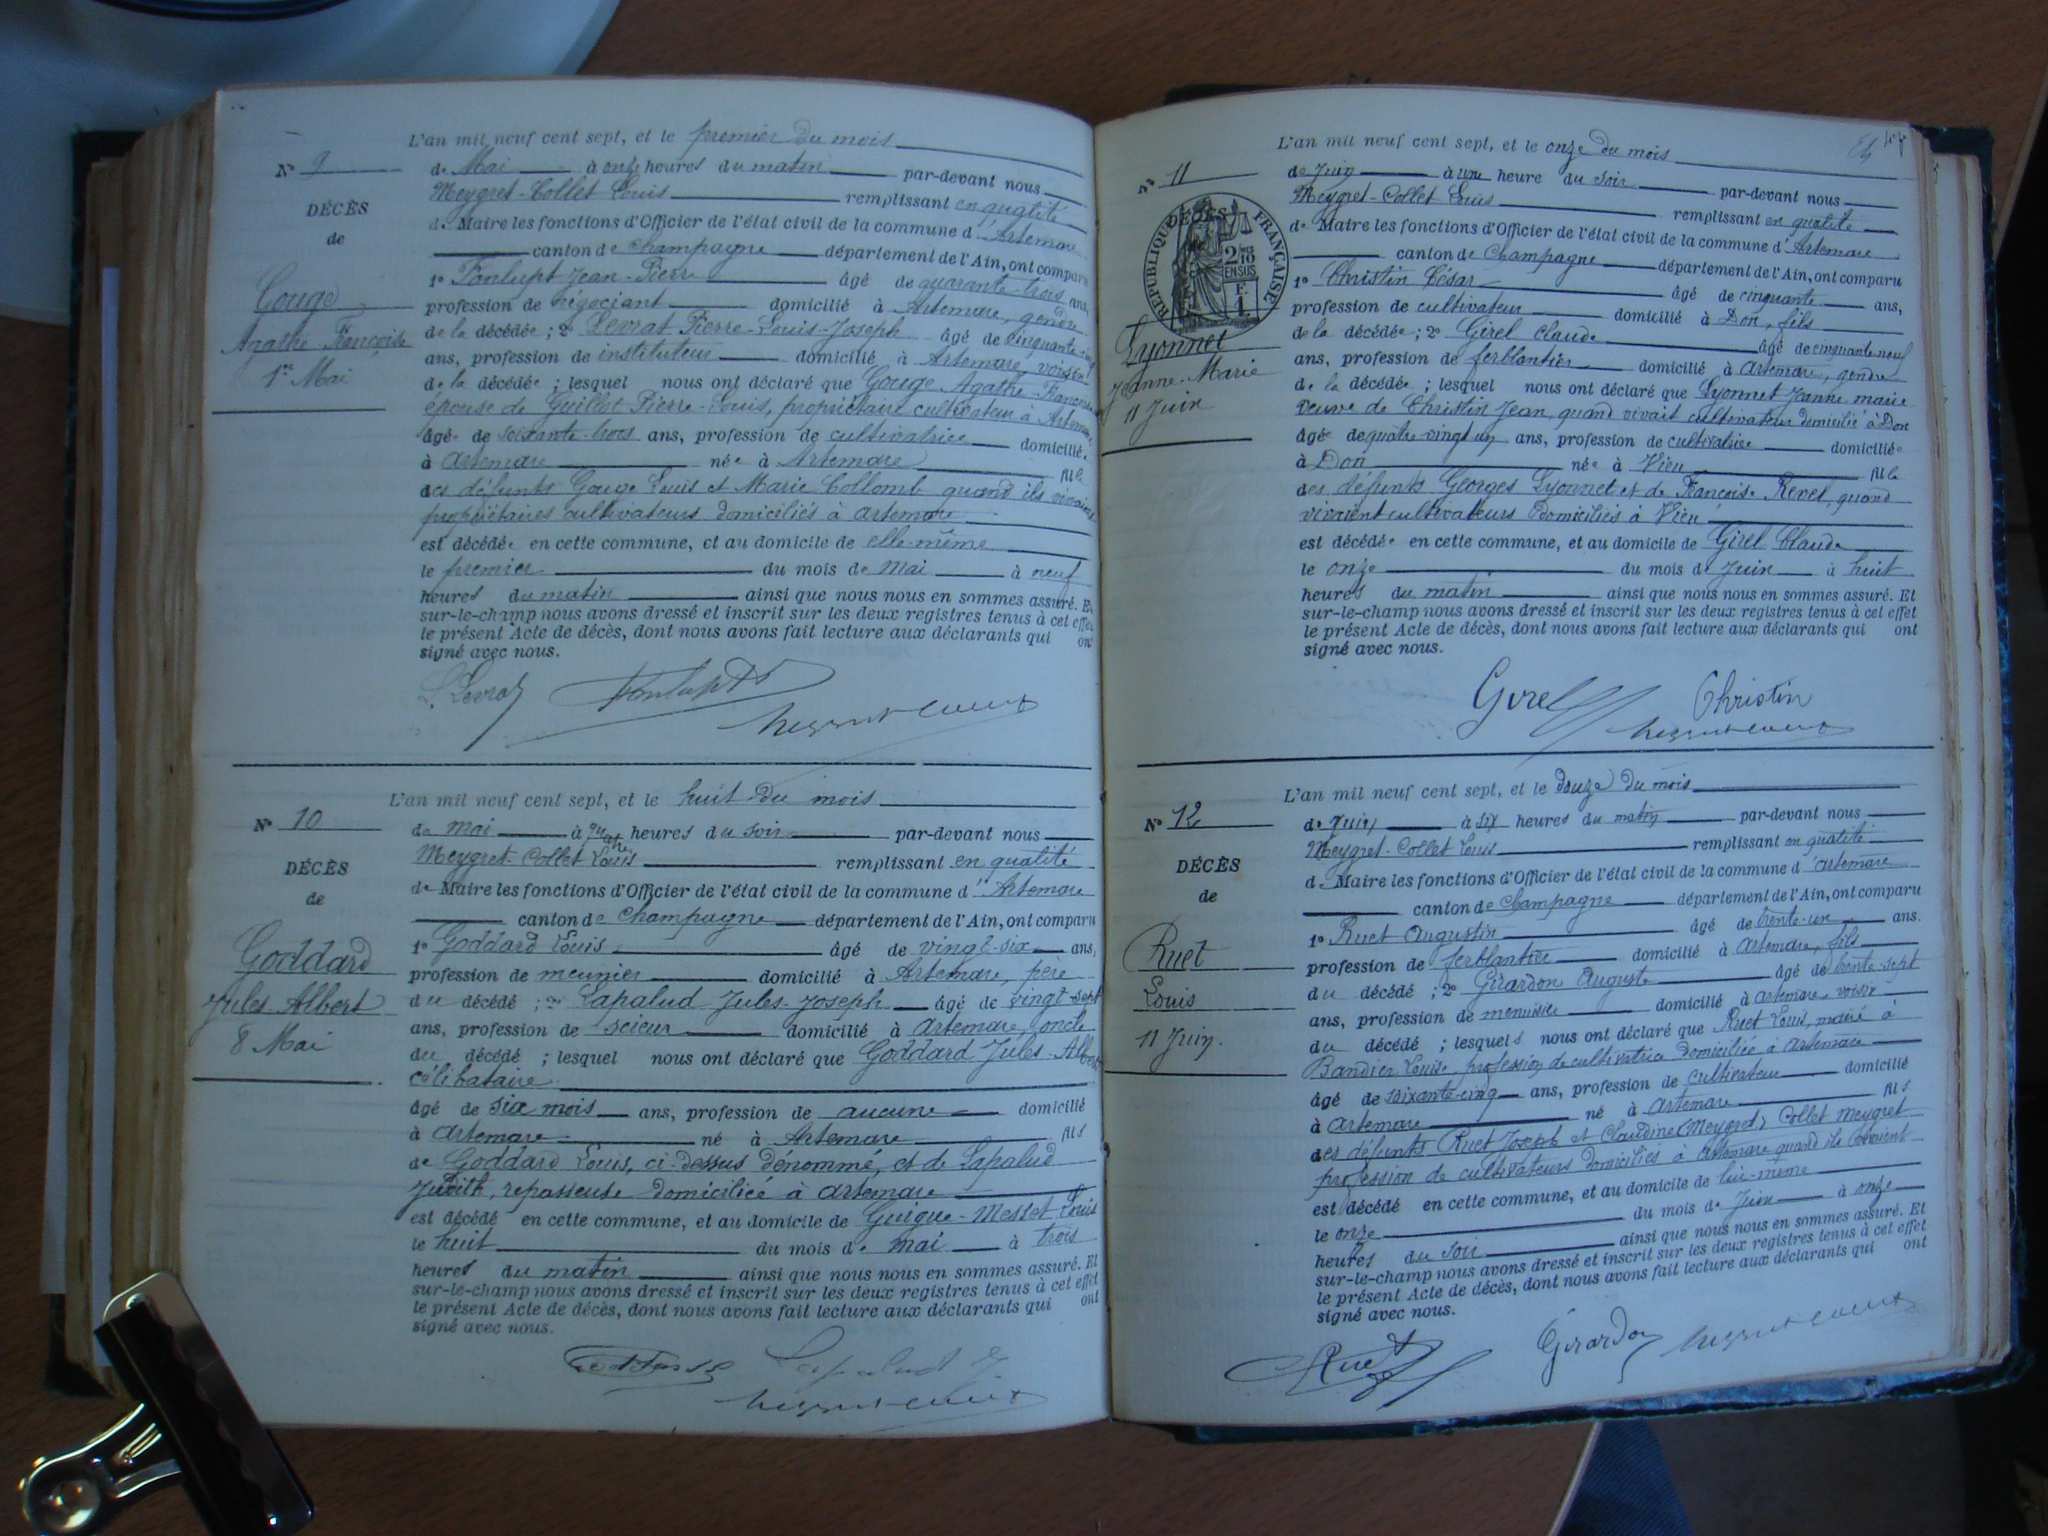 L'an mil neuf cent sept, et le premier du mois
N° 9
de Mai à onze heures du matin par-devant nous
Meygret-Collet Louis remplissant en qualité
DÉCÈS
de Maire les fonctions d'Officier de l'état civil de la commune d' Artemare
de
canton de Champagne département de l'Ain, ont comparu
1° Fonlupt Jean-Pierre âgé de quarante-trois ans,
Gouge
profession de négociant domicilié à Artemare, gendre
Agathe Françoise
de la décédée ; 2° Levrat Pierre-Louis-Joseph âgé de cinquante-cinq
1er Mai
ans, profession de instituteur domicilié à Artemare, voisin
de la décédée ; lesquel nous ont déclaré que Gouge Agathe-Françoise
épouse de Guillot Pierre-Louis, propriétaire cultivateur à Artemare
âgée de soixante-trois ans, profession de cultivatrice domiciliée
à Artemare née à Artemare fille
des défunts Gouge Louis et Marie Collomb quand ils vivaient
propriétaires cultivateurs domiciliés à Artemare
est décédée en cette commune, et au domicile de elle-même
le premier du mois de Mai à neuf
heures du matin ainsi que nous nous en sommes assuré. Et
sur-le-champ nous avons dressé et inscrit sur les deux registres tenus à cet effet
le présent Acte de décès, dont nous avons fait lecture aux déclarants qui ont
signé avec nous.
L. Levrat Fonlupt
L'an mil neuf cent sept, et le huit du mois
N° 10
de mai à quatre heures du soir par-devant nous
Meygret-Collet Louis remplissant en qualité
DÉCÈS
de Maire les fonctions d'Officier de l'état civil de la commune d' Artemare
de
canton de Champagne département de l'Ain, ont comparu
Goddard
1° Goddard Louis âgé de vingt-six ans,
profession de meunier domicilié à Artemare, père
Jules Albert
du décédé ; 2° Lapalud Jules-Joseph âgé de vingt-sept
8 Mai
ans, profession de scieur domicilié à Artemare, oncle
du décédé ; lesquel nous ont déclaré que Goddard Jules-Albert
célibataire
âgé de six mois ans, profession de aucune domicilié
à Artemare né à Artemare fils
de Goddard Louis, ci-dessus dénommé, et de Lapalud
Judith, repasseuse domiciliée à Artemare
est décédé en cette commune, et au domicile de Guigue-Messet Louis
le huit du mois de mai à trois
heures du matin ainsi que nous nous en sommes assuré. Et
sur-le-champ nous avons dressé et inscrit sur les deux registres tenus à cet effet
le présent Acte de décès, dont nous avons fait lecture aux déclarants qui ont
signé avec nous.
Lapalud J
L'an mil neuf cent sept, et le onze du mois
N° 11
de Juin à une heure du soir par-devant nous
Meygret-Collet Louis remplissant en qualité
DÉCÈS
RÉPUBLIQUE FRANÇAISE
2/10 EN SUS
de Maire les fonctions d'Officier de l'état civil de la commune d' Artemare
canton de Champagne département de l'Ain, ont comparu
1° Christin César âgé de cinquante ans,
profession de cultivateur domicilié à Don, fils
Lyonnet
de la décédée ; 2° Girel Claude âgé de cinquante neuf
Jeanne-Marie
ans, profession de ferblantier domicilié à Artemare, gendre
11 Juin
de la décédée ; lesquel nous ont déclaré que Lyonnet Jeanne marie
veuve de Christin Jean, quand vivait cultivateur domicilié à Don
âgée de quatre-vingt un ans, profession de cultivatrice domiciliée
à Don née à Vieu fille
des défunts Georges Lyonnet et de Françoise Revet, quand
vivaient cultivateurs domiciliés à Vieu
est décédée en cette commune, et au domicile de Girel Claude
le onze du mois de Juin à huit
heures du matin ainsi que nous nous en sommes assuré. Et
sur-le-champ nous avons dressé et inscrit sur les deux registres tenus à cet effet
le présent Acte de décès, dont nous avons fait lecture aux déclarants qui ont
signé avec nous.
Girel Christin
L'an mil neuf cent sept, et le douze du mois
N° 12
de Juin à six heures du matin par-devant nous
Meygret-Collet Louis remplissant en qualité
DÉCÈS
de Maire les fonctions d'Officier de l'état civil de la commune d' Artemare
de
canton de Champagne département de l'Ain, ont comparu
1° Ruet Augustin âgé de trente-un ans.
Ruet
profession de ferblantier domicilié à Artemare, fils
Louis
du décédé ; 2° Girardon Auguste âgé de trente-sept
11 Juin.
ans, profession de menuisier domicilié à Artemare voisin
du décédé ; lesquels nous ont déclaré que Ruet Louis, marié à
Bandier Louise, profession de cultivatrice domiciliée à Artemare
âgé de soixante-cinq ans, profession de cultivateur domicilié
à Artemare né à Artemare fils
des défunts Ruet Joseph et Claudine (Meygret) Collet Meygret
profession de cultivateurs domiciliés à Artemare quand ils vivaient
est décédé en cette commune, et au domicile de lui-même
le onze du mois de Juin à onze
heures du soir ainsi que nous nous en sommes assuré. Et
sur-le-champ nous avons dressé et inscrit sur les deux registres tenus à cet effet
le présent Acte de décès, dont nous avons fait lecture aux déclarants qui ont
signé avec nous.
Ruet Girardon